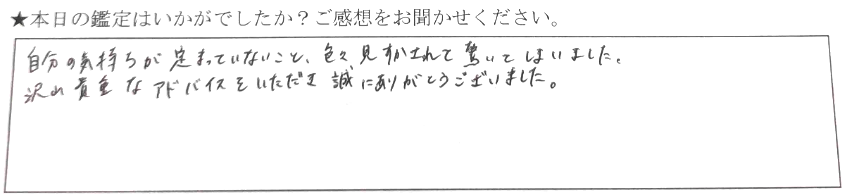 ★本日の鑑定はいかがでしたか？ご感想をお聞かせください。
自分の気持ちが定まっていないこと、色々見すかされて驚いてしまいました。
沢山貴重なアドバイスをいただき誠にありがとうございました。